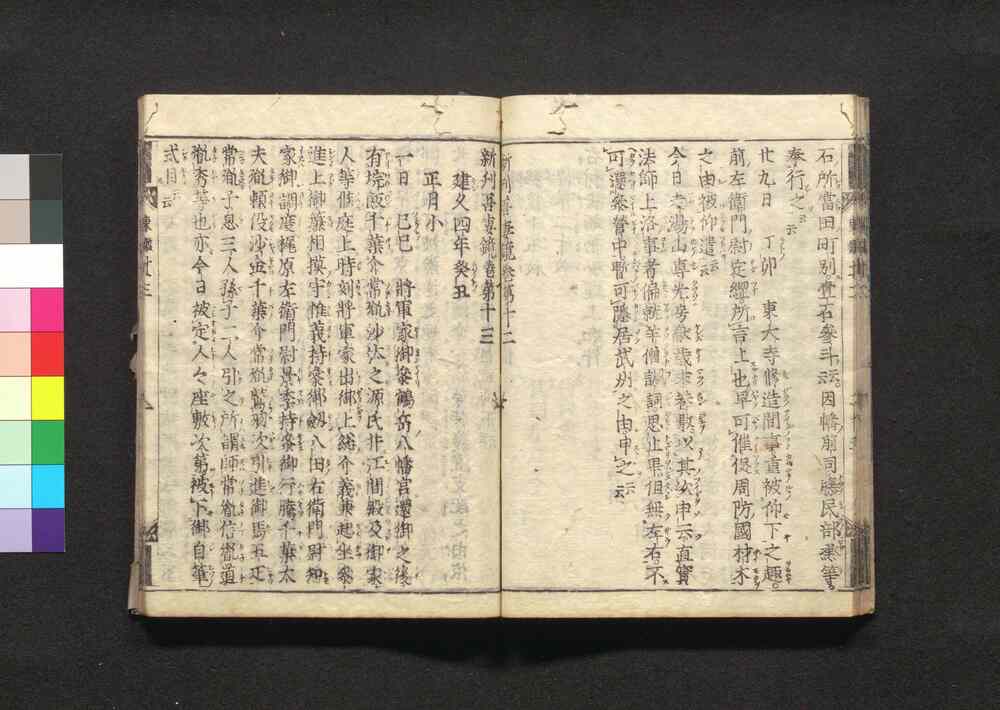 石所當田町別壹石參斗云因幡前司廳民部丞等
奉行之云
廿九日 丁卯 東大寺修造間事重被仰下之趣
前左衛門尉定經所言上也早可催促周防國材木
之由被仰遣云
今日走湯山專光房獻歳末卷數以其次申云直實
法師上洛事者偏就羊僧諷詞思止畢但無左右不
可還參營中暫可隱居武州之由申之云
新刊吾妻鏡卷第十二
新刊吾妻鏡卷第十三
建久四年癸丑
正月小
一日 己巳 將軍家御參鶴岳八幡宮還御之後
有垸飯千葉介常胤沙汰之源氏井江間殿及御家
人等候庭上時刻將軍家出御上總介義兼起坐參
進上御簾相摸守惟義持參御劔八田右衛門尉知
家御調度梶原左衛門尉景季持參御行騰千葉太
夫胤頼役沙金千葉介常胤鷲羽次引進御馬五疋
常胤子息三人孫子二人引之所謂師常胤信胤道
胤秀等也亦今日被定人々座敷次第被下御自筆
式目云